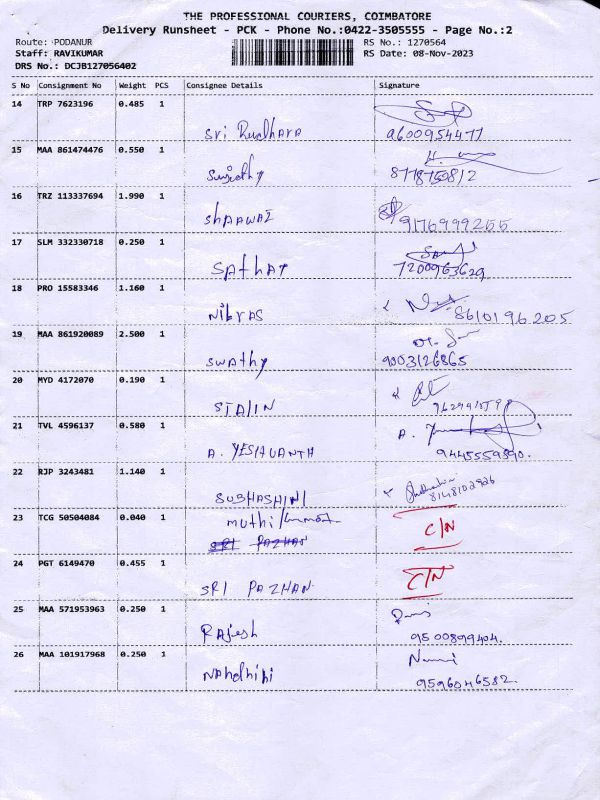 THE PROFESSIONAL COURIERS, COIMBATORE
Delivery Runsheet - PCK - Phone No.:0422-3505555 - Page No.:2
Route: PODANUR RS No.: 1270564
Staff: RAVIKUMAR RS Date: 08-Nov-2023
DRS No.: DCJB127056402
S No Consignment No Weight PCS Consignee Details Signature
14 TRP 7623196 0.485 1
Sri Rudhara 9600954477
15 MAA 861474476 0.550 1
Sujidhy
16 TRZ 113337694 1.990 1
SHAAWAZ 9176999255
17 SLM 332330718 0.250 1
SATHAT 7200963629
18 PRO 15583346 1.160 1
NibrAS 8610196205
19 MAA 861920089 2.500 1
SWAthy 9003126865
20 MYD 4172070 0.190 1
STALIN
21 TVL 4596137 0.580 1
A. YESHUANTH 9445559890.
22 RJP 3243481 1.140 1
SUBHASHINI 8148102926
23 TCG 50504084 0.040 1
C/N
SRI PAZHAN
24 PGT 6149470 0.455 1
SRI PAZHAN C/N
25 MAA 571953963 0.250 1
RAjesh 9500899404.
26 MAA 101917968 0.250 1
NAhdhihi 9596046582.